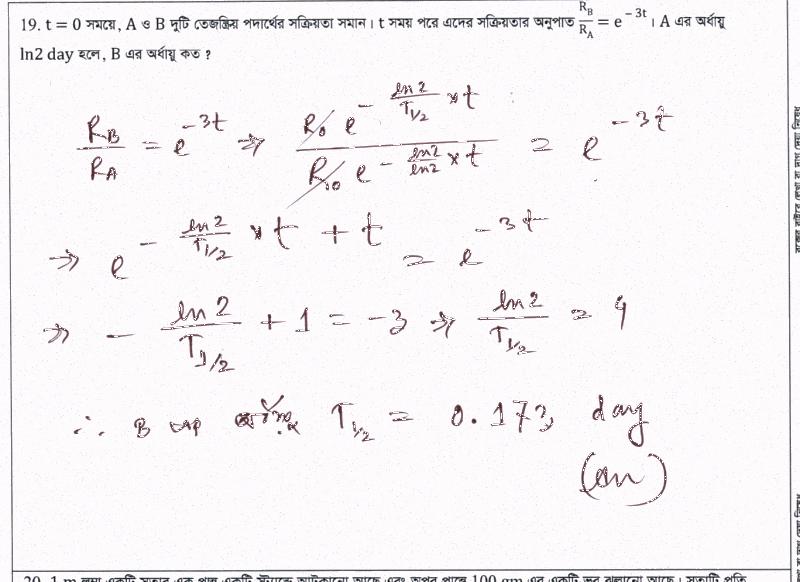 19. t = 0 সময়ে, A ও B দুটি তেজস্ক্রিয় পদার্থের সক্রিয়তা সমান। t সময় পরে এদের সক্রিয়তার অনুপাত R_B/R_A = e^{-3t}। A এর অর্ধায়ু
ln2 day হলে, B এর অর্ধায়ু কত ?
R_B/R_A = e^{-3t} ⇒ (R_0 e^{-(ln2/T_{1/2}) × t})/(R_0 e^{-(ln2/ln2) × t}) = e^{-3t}
⇒ e^{-(ln2/T_{1/2}) × t + t} = e^{-3t}
⇒ - ln2/T_{1/2} + 1 = -3 ⇒ ln2/T_{1/2} = 4
∴ B এর T_{1/2} = 0.173 day
(an)
20. 1 m লম্বা একটি সুতার এক প্রান্ত একটি স্ট্যান্ডে আটকানো আছে এবং অপর প্রান্তে 100 gm এর একটি ভর ঝুলানো আছে। সুতাটি প্রতি